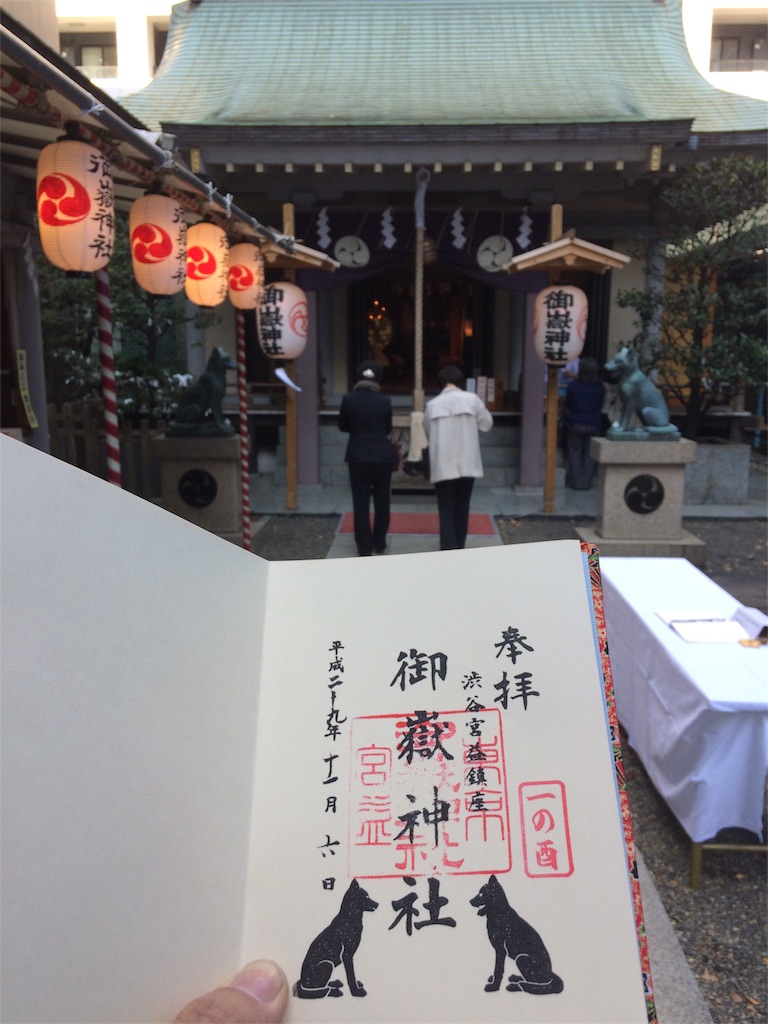 御嶽神社
御嶽神社
御嶽神社
奉拝
渋谷宮益鎮座
御嶽神社
東京
宮益
一の酉
平成二十九年十一月六日